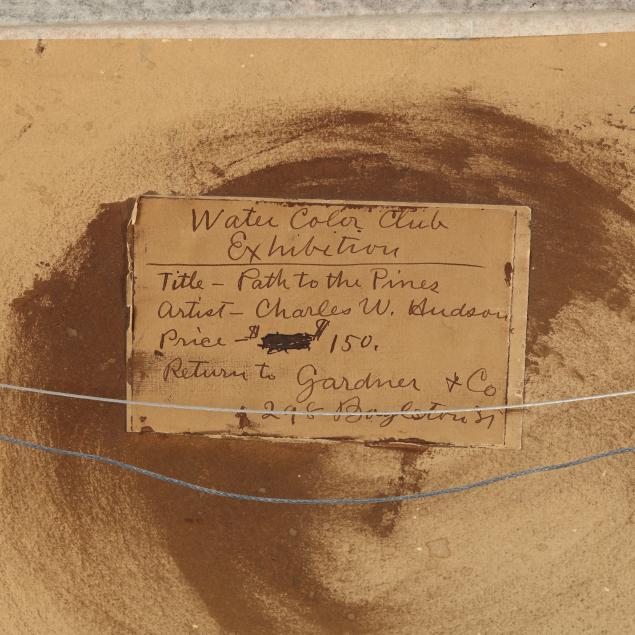 Water Color Club
Exhibition
Title – Path to the Pines
Artist – Charles W. Hudson
Price – $ $150.
Return to Gardner & Co
298 Boylston St